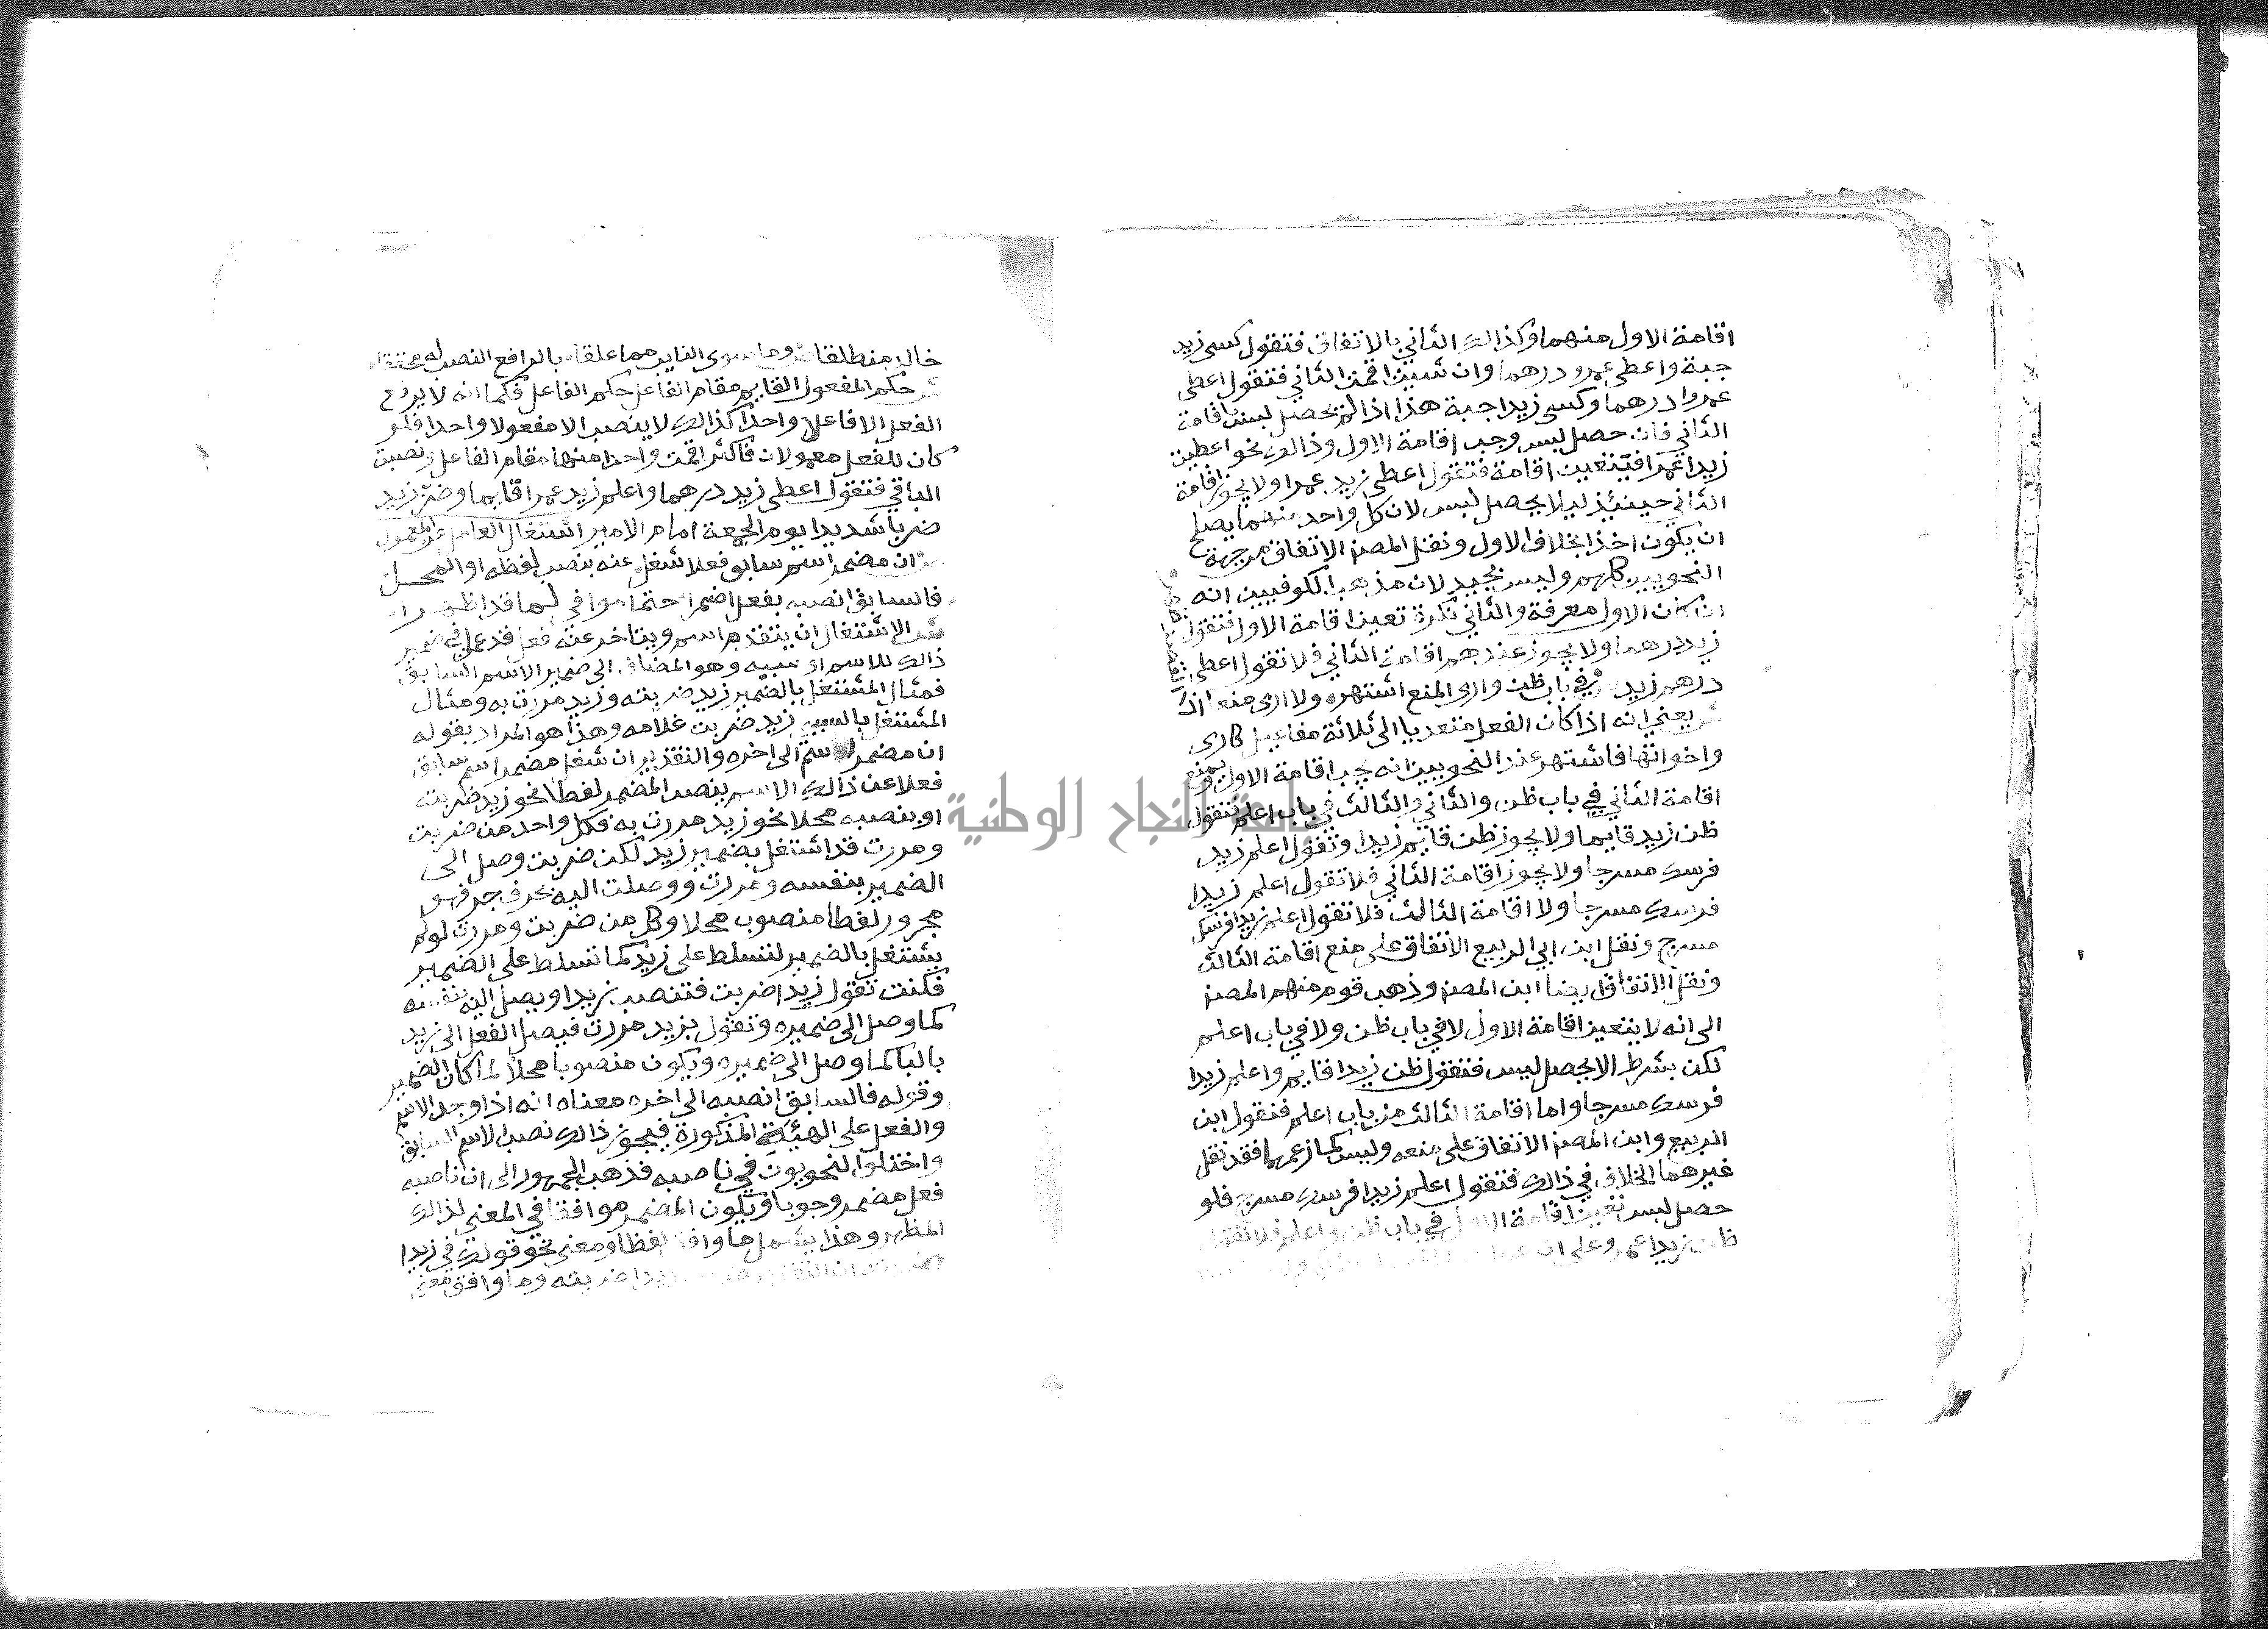 اقامة الاول منهما وكذالك الثاني بالاتفاق فتقول كسى زيد
جبة واعطى عمرو درهما وان شيت اقمت الثاني فتقول اعطى
عمروا درهم وكسى زيدا جبة هذا اذا لم يحصل لبس باقامة
الثاني فان حصل لبس وجب اقامة الاول وذالك نحو اعطيت
زيدا عمرا فتتعين اقامة فتقول اعطى زيد عمرا ولا يجوز اقامة
الثاني حينئذ ليلا يحصل لبس لان كل واحد منهما يصلح
ان يكون اخذا بخلاف الاول ونقل المصنف الاتفاق من جهة
النحويين كلهم وليس بجيد لان مذهب الكوفيين انه
ان كان الاول معرفة والثاني نكرة تعين اقامة الاول فتقول
زيد درهما ولا يجوز عندهم اقامة الثاني فلا تقول اعطى
درهم زيد في باب ظن وارى المنع اشتهر ولا ارى منعا اذا
يعني انه اذا كان الفعل متعديا الى ثلاثة مفاعيل كارى
واخواتها فاشتهر عند النحويين انه يجب اقامة الاول ويمتنع
اقامة الثاني في باب ظن والثاني والثالث في باب اعلم فتقول
ظن زيد قايما ولا يجوز ظن قايم زيدا وتقول اعلم زيد
فرسك مسرجا ولا يجوز اقامة الثاني فلا تقول اعلم زيدا
فرسك مسرجا ولا اقامة الثالث فلا تقول اعلم زيدا فرسك
مسرج ونقل ابن ابي الربيع الاتفاق على منع اقامة الثالث
ونقل الاتفاق ايضا ابن المصنف وذهب قوم منهم المصنف
الى انه لا يتعين اقامة الاول لا في باب ظن ولا في باب اعلم
لكن بشرط الا يحصل لبس فتقول ظن زيدا قايم واعلم زيدا
فرسك مسرجا واما اقامة الثالث من باب اعلم فنقول ابن
الربيع وابن المصنف الاتفاق على منعه وليس كما زعما فقد نقل
غيرهما الخلاف في ذالك فتقول اعلم زيدا فرسك مسرج فلو
حصل لبس تعين اقامة الاول في باب ظن واعلم فلا تقول
ظن زيدا عمرو على ان
خالد منطلقا وما سوى النايب مما علقا بالرافع النصب له محققا
حكم المفعول القايم مقام الفاعل حكم الفاعل فكما انه لا يرفع
الفعل الا فاعلا واحدا كذالك لا ينصب الا مفعولا واحدا فلو
كان للفعل معمولان فاكثر اقمت واحدا منها مقام الفاعل ونصبت
الباقي فتقول اعطى زيد درهما واعلم زيد عمرا قايما وضرب زيد
ضربا شديدا يوم الجمعة امام الامير اشتغال العامل عن المعمول
ان مضمر اسم سابق فعلا شغل عنه بنصب لفظه او المحل
فالسابق انصبه بفعل اضمرا حتما موافق لما قد اظهرا
الاشتغال ان يتقدم اسم ويتاخر عنه فعل قد عمل في ضمير
ذالك للاسم او سببيه وهو المضاف الى ضمير الاسم السابق
فمثال المشتغل بالضمير زيد ضربته وزيد مررت به ومثال
المشتغل بالسببي زيد ضربت غلامه وهذا هو المراد بقوله
ان مضمر اسم الى اخره والتقدير ان شغل مضمر اسم سابق
فعلا عن ذالك الاسم بنصب المضمر لفظا نحو زيد ضربته
او بنصبه محلا نحو زيد مررت به فكل واحد من ضربت
ومررت قد اشتغل بضمير زيد لكن ضربت وصل الى
الضمير بنفسه ومررت ووصلت اليه بحرف جر فهو
مجرور لفظا منصوب محلا وكل من ضربت ومررت لولم
يشتغل بالضمير لتسلط على زيد كما تسلط على الضمير
فكنت تقول زيدا ضربت فتنصب زيدا ويصل اليه بنفسه
كما وصل الى ضميره وتقول بزيد مررت فيصل الفعل الى زيد
بالبا كما وصل الى ضميره ويكون منصوبا محلا كما كان الضمير
وقوله فالسابق انصبه الى اخره معناه انه اذا وجد الاسم
والفعل على الهيئة المذكورة فيجوز ذالك نصب الاسم السابق
واختلوا النحويون في ناصبه فذهب الجمهور الى ان ناصبه
فعل مضمر وجوبا ويكون المضمر موافقا في المعنى لذالك
المظهر وهذا يشمل ما وافق لفظا ومعنى نحو قولك في زيدا
ضربته ان التقدير ضربت زيدا ضربته وما وافق معنى
جامعة النجاح الوطنية